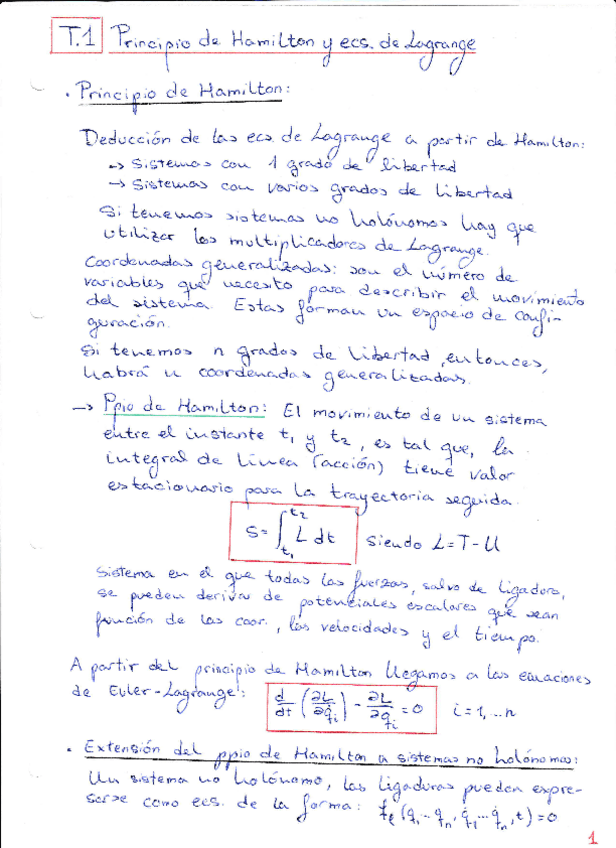 T.1 Principio de Hamilton y ecs. de Lagrange
· Principio de Hamilton:
Deducción de las ecs. de Lagrange a partir de Hamilton:
→ Sistemas con 1 grado de libertad
→ Sistemas con varios grados de libertad
Si tenemos sistemas no holónomos hay que
utilizar los multiplicadores de Lagrange.
Coordenadas generalizadas: son el número de
variables que necesito para describir el movimiento
del sistema. Estas forman un espacio de confi-
guración.
Si tenemos n grados de libertad, entonces,
habrá n coordenadas generalizadas.
→ Ppio de Hamilton: El movimiento de un sistema
entre el instante t₁ y t₂, es tal que, la
integral de línea (acción) tiene valor
estacionario para la trayectoria seguida.
S = ∫_{t₁}^{t₂} L dt siendo L = T - U
Sistema en el que todas las fuerzas, salvo de ligadura,
se pueden derivar de potenciales escalares que sean
función de las coor., las velocidades y el tiempo.
A partir del principio de Hamilton llegamos a las ecuaciones
de Euler-Lagrange: d/dt (∂L/∂q̇ᵢ) - ∂L/∂qᵢ = 0 i = 1, ... n
· Extensión del ppio de Hamilton a sistemas no holónomos:
Un sistema no holónomo, las ligaduras pueden expre-
sarse como ecs. de la forma: f_ℓ (q₁ ... qₙ, q̇₁ ... q̇ₙ, t) = 0
1